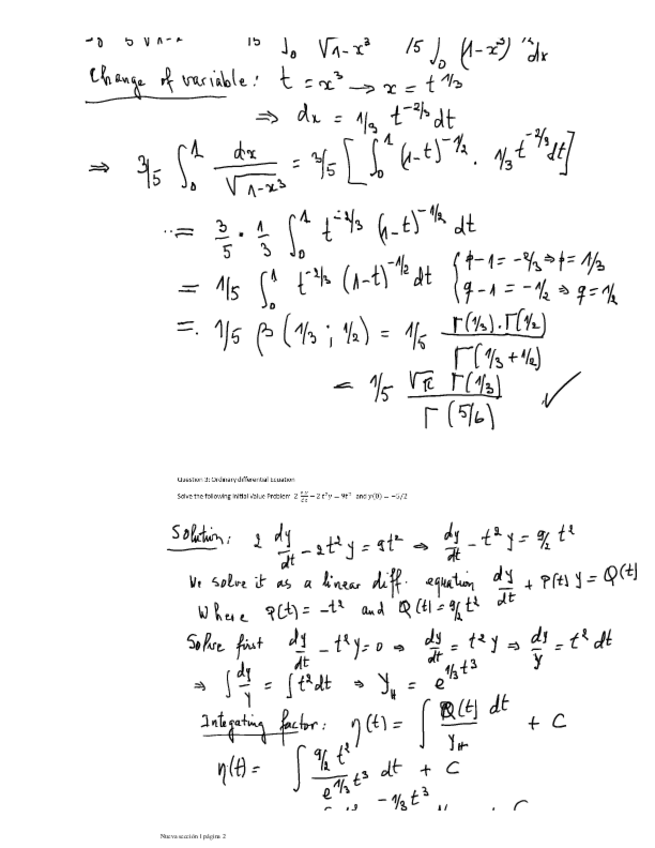 15 ∫₀ √1-x³ 15 ∫₀ (1-x³) dx
Change of variable: t = x³ → x = t^1/3
⇒ dx = 1/3 t^-2/3 dt
⇒ 3/5 ∫₀¹ dx/√1-x³ = 3/5 [∫₀¹ (1-t)^-1/2 . 1/3 t^-2/3 dt]
= 3/5 . 1/3 ∫₀¹ t^-2/3 (1-t)^-1/2 dt
= 1/5 ∫₀¹ t^-2/3 (1-t)^-1/2 dt { p-1 = -2/3 ⇒ p = 1/3
q-1 = -1/2 ⇒ q = 1/2
= 1/5 β (1/3 ; 1/2) = 1/5 Γ(1/3).Γ(1/2) / Γ(1/3+1/2)
= 1/5 √π Γ(1/3) / Γ(5/6) ✓
Question 3: Ordinary differential Equation
Solve the following Initial Value Problem 2 dy/dt − 2 t²y = 9t² and y(0) = −5/2
Solution: 2 dy/dt - 2t² y = 9t² ⇒ dy/dt - t² y = 9/2 t²
We solve it as a linear diff. equation dy/dt + P(t) y = Q(t)
Where P(t) = -t² and Q(t) = 9/2 t²
Solve first dy/dt - t² y = 0 ⇒ dy/dt = t² y ⇒ dy/y = t² dt
⇒ ∫ dy/y = ∫ t² dt ⇒ y_H = e^1/3 t³
Integating factor: η(t) = ∫ Q(t)/y_H dt + C
η(t) = ∫ 9/2 t² / e^1/3 t³ dt + C
-1/3 t³
Nueva sección 1 página 2